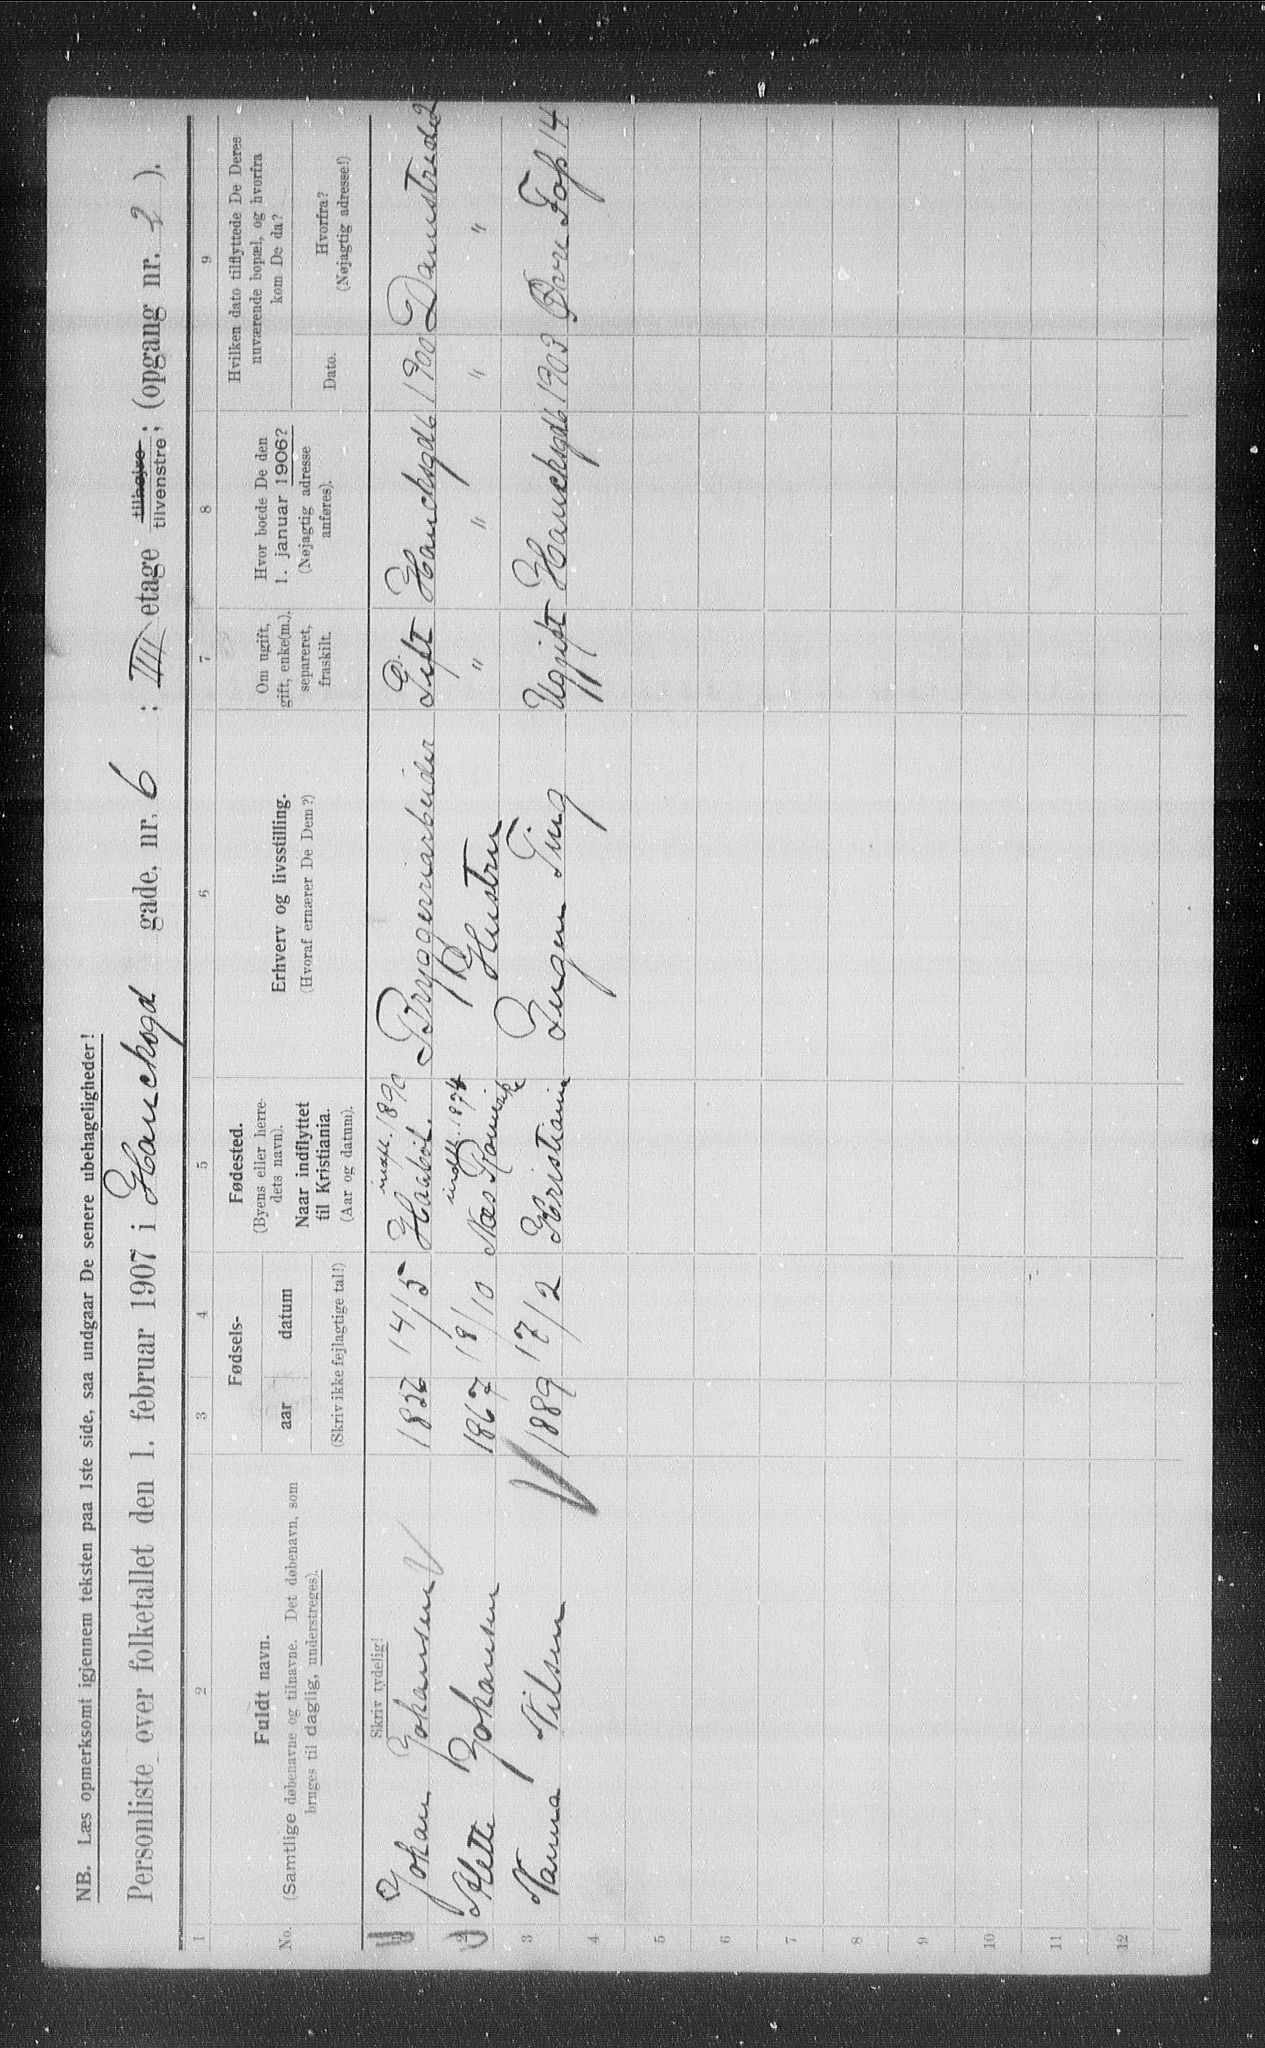 NB. Læs opmerksomt igjennem teksten paa 1ste side, saa undgaar De senere ubehageligheder!
Personliste over folketallet den 1. februar 1907 i Hauchsgd gade, nr. 6 : IIII etage tilhøjre tilvenstre; (opgang nr. 2 ).
1 2 3 4 5 6 7 8 9
No.
Fuldt navn.
(Samtlige døbenavne og tilnavne. Det døbenavn, som
bruges til daglig, understreges).
Fødsels-
aar datum
(Skriv ikke fejlagtige tal!)
Fødested.
(Byens eller herre-
dets navn).
Naar indflyttet
til Kristiania.
(Aar og datum).
Erhverv og livsstilling.
(Hvoraf ernærer De Dem?)
Om ugift,
gift, enke(m.),
separeret,
fraskilt.
Hvor boede De den
1. januar 1906?
(Nøjagtig adresse
anføres).
Hvilken dato tilflyttede De Deres
nuværende bopæl, og hvorfra
kom De da?
Dato.
Hvorfra?
(Nøjagtig adresse!)
Skriv tydelig!
indfl. 1890
1 Johan Johansen 14/5 Haabøl. Bryggeriarbeider Gift Hauchsgd 6 1900 Damstrede 2
indfl. 1874
2 Mette Johansen 1867 18/10 Næs Romerike Hustru " " " "
3 Nanna Nilsen 1889 17/2 Kristiania Ingen Ting Ugift Hauchsgd 6 1903 Øvre Foss 14
4
5
6
7
8
9
10
11
12